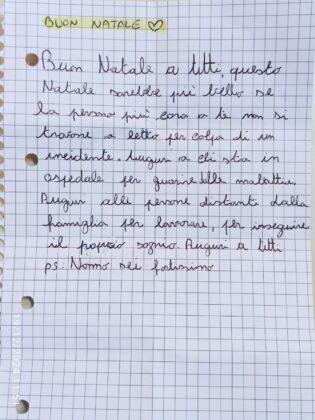 BUON NATALE ♡
Buon Natale a tutti, questo
Natale sarebbe più bello se
la persona più cara a te non si
trovasse a letto per colpa di un
incidente. Auguri a chi sta in
ospedale per guarire dalle malattie.
Auguri alle persone distanti dalla
famiglia per lavorare, per inseguire
il proprio sogno. Auguri a tutti
ps: Nonno sei fortissimo